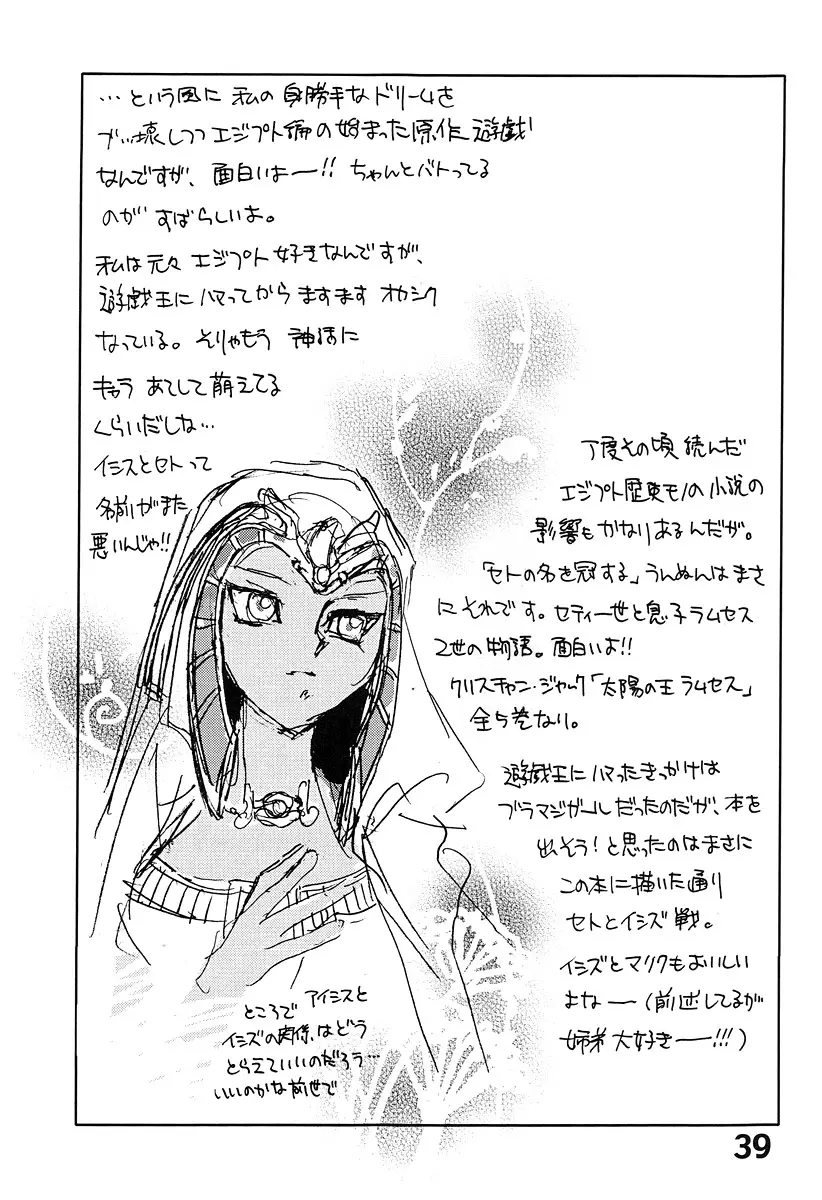 …という風に 私の身勝手なドリームを
ブッ壊しつつエジプト編の始まった原作遊戯
なんですが、面白いよー!! ちゃんとバトってる
のが すばらしいよ。
私は元々 エジプト好きなんですが、
遊戯王にハマってから ますます オカシク
なっている。そりゃもう 神話に
キャラ あてして萌えてる
くらいだしな…
イシスとセトって
名前がまた
悪いんじゃ!!
丁度その頃 読んだ
エジプト歴史モノの小説の
影響もかなりあるんだが。
「セトの名を冠する」うんぬんはまさ
にそれです。セティ一世と息子ラムセス
2世の物語。面白いよ!!
クリスチャン・ジャック「太陽の王 ラムセス」
全5巻なり。
遊戯王にハマったきっかけは
ブラマジガールだったのだが、本を
出そう!と思ったのはまさに
この本に描いた通り
セトとイシズ戦。
イシズとマリクもおいしい
よなー (前述してるが
姉弟大好きー!!!)
ところで アイシスと
イシズの関係はどう
とらえていいのだろう…
いいのかな前世で
39